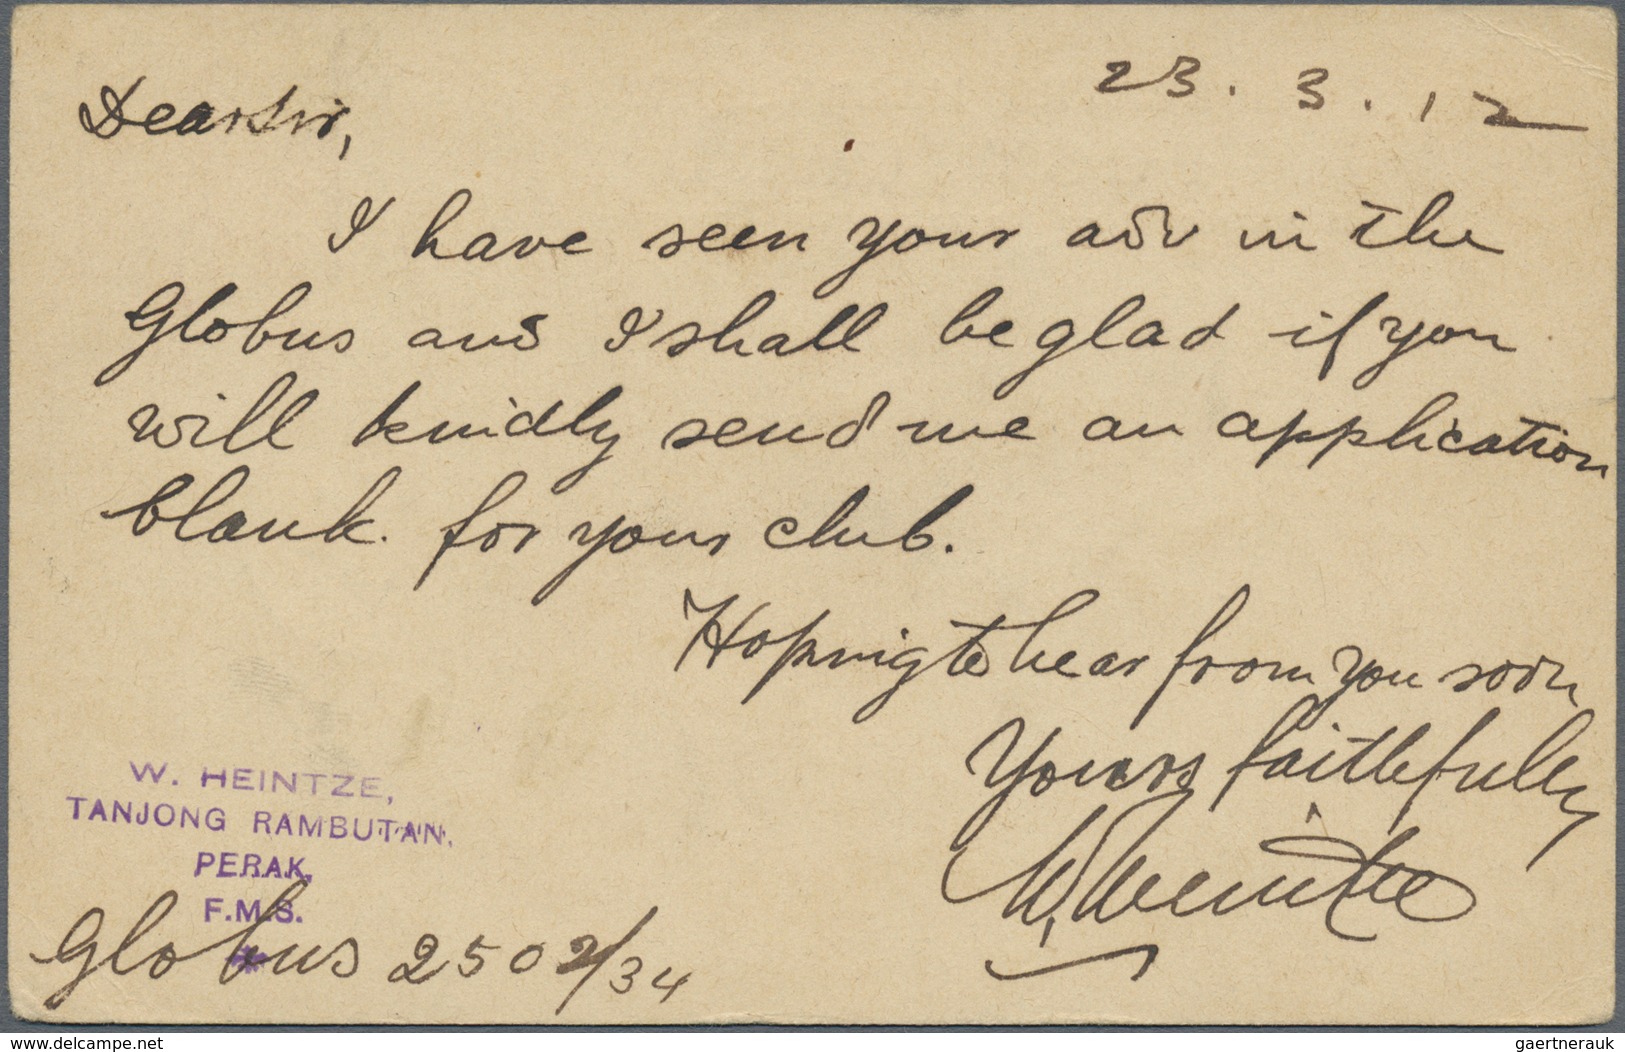 23.3.12
Dear Sir,
I have seen your adv in the
Globus and I shall be glad if you
will kindly send me an application
blank. for your club.
Hoping to hear from you soon
Yours faithfully
W. Heintze
W. HEINTZE,
TANJONG RAMBUTAN.
PERAK,
F.M.S.
Globus 2502/34
www.delcampe.net
gaertnerauk